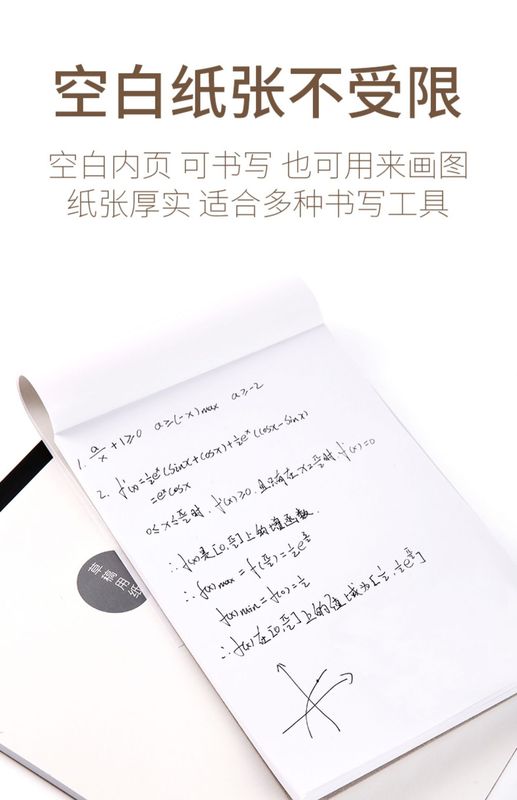 空白纸张不受限
空白内页 可书写 也可用来画图
纸张厚实 适合多种书写工具
1. a/x+1≥0 a≥(-x)max a≥-2
2. f'(x)=½eˣ(sinx+cosx)+½eˣ(cosx-sinx)
=eˣcosx
0≤x≤π/2时, f'(x)≥0, 且只有在x=π/2时, f'(x)=0
∴f(x)是[0,π/2]上的增函数.
∴f(x)max=f(π/2)=½e^(π/2)
f(x)min=f(0)=½
∴f(x)在[0,π/2]上的值域为[½,½e^(π/2)]
草稿用纸